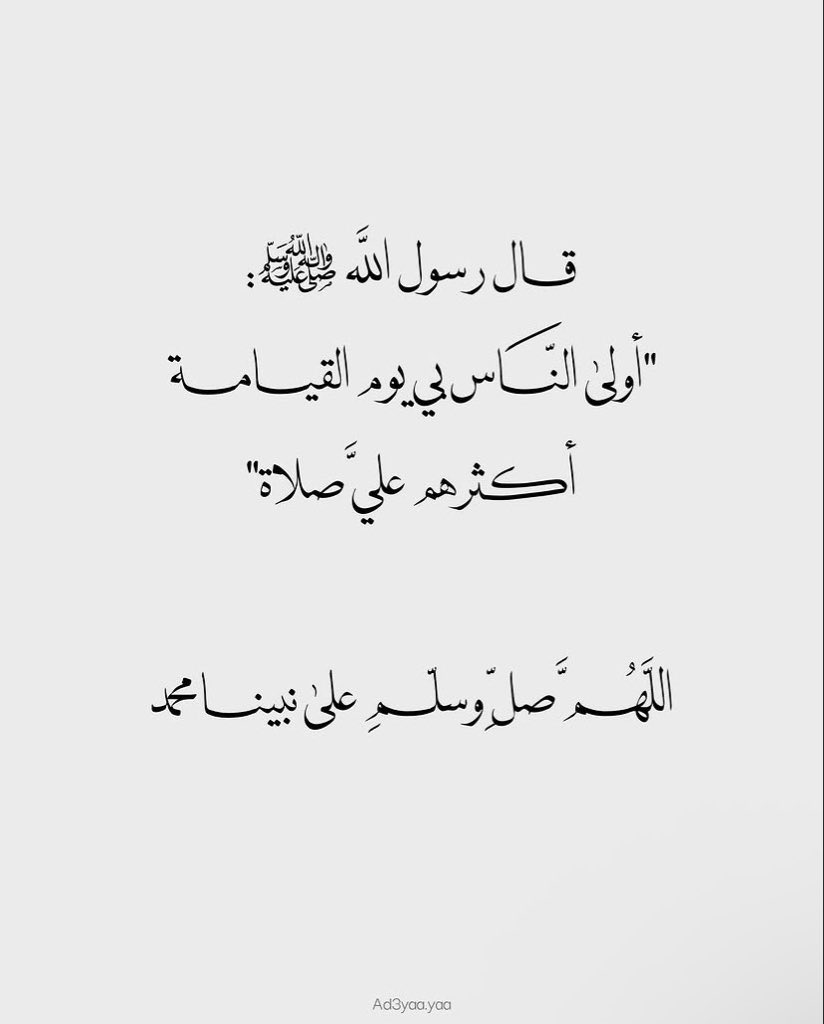 قال رسول اللَّه ﷺ:
"أولىٰ النَّاس بي يوم القيامة
أكثرهم عليَّ صلاة"
اللَّهُمَّ صلِّ وسلّمِ علىٰ نبينا محمد
Ad3yaa.yaa